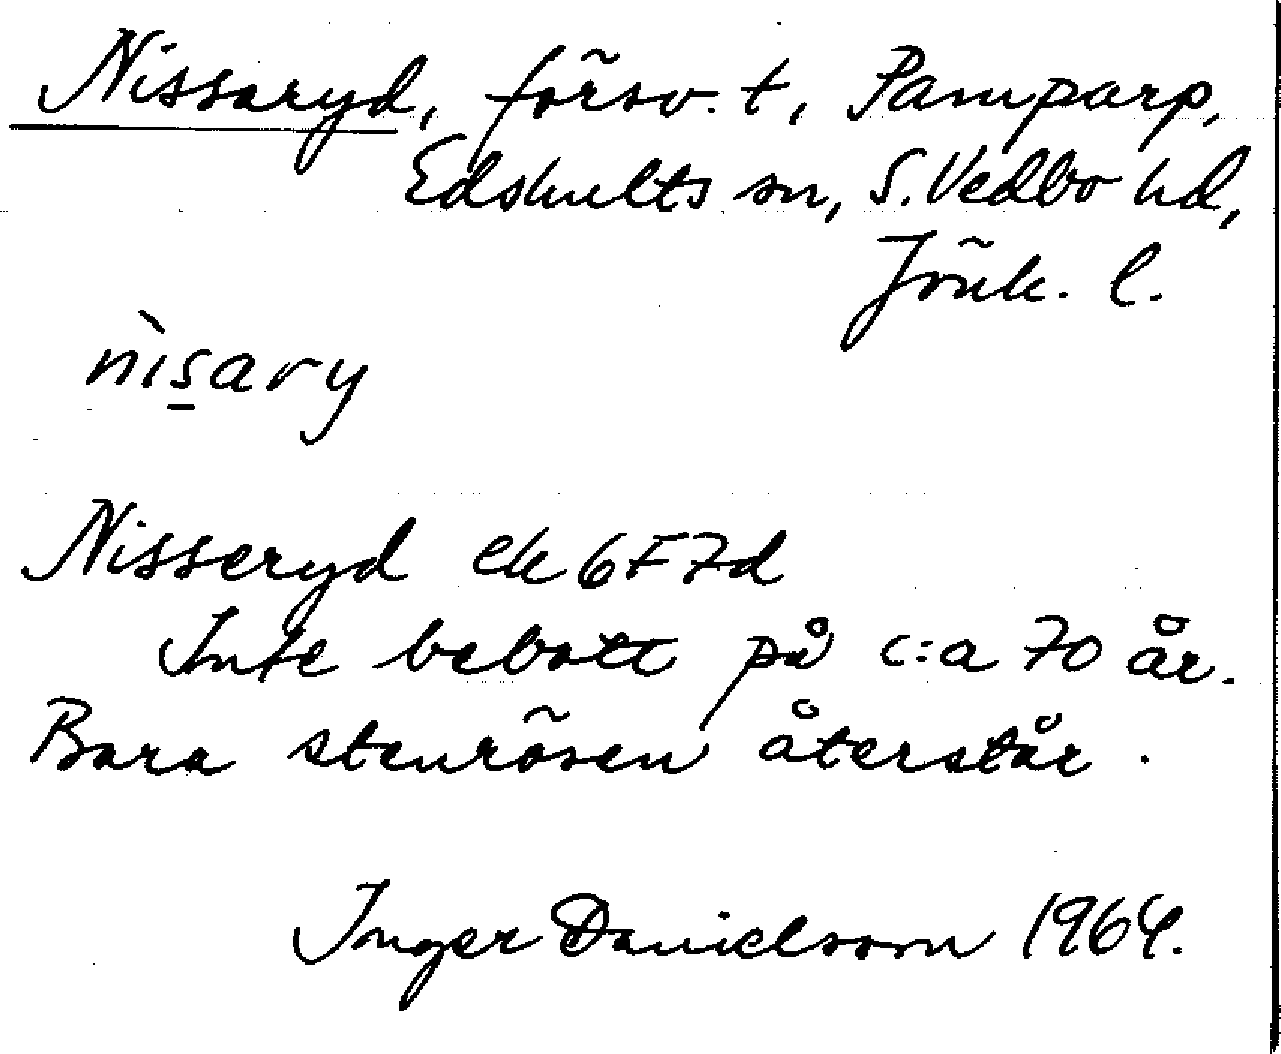 Nissaryd, försv. t, Pamparp,
Edshults sn, S. Vedbo hd,
Jönk. l.
nìsary
Nisseryd ek 6F7d
Inte bebott på c:a 70 år.
Bara stenrösen återstår.
Inger Danielsson 1964.